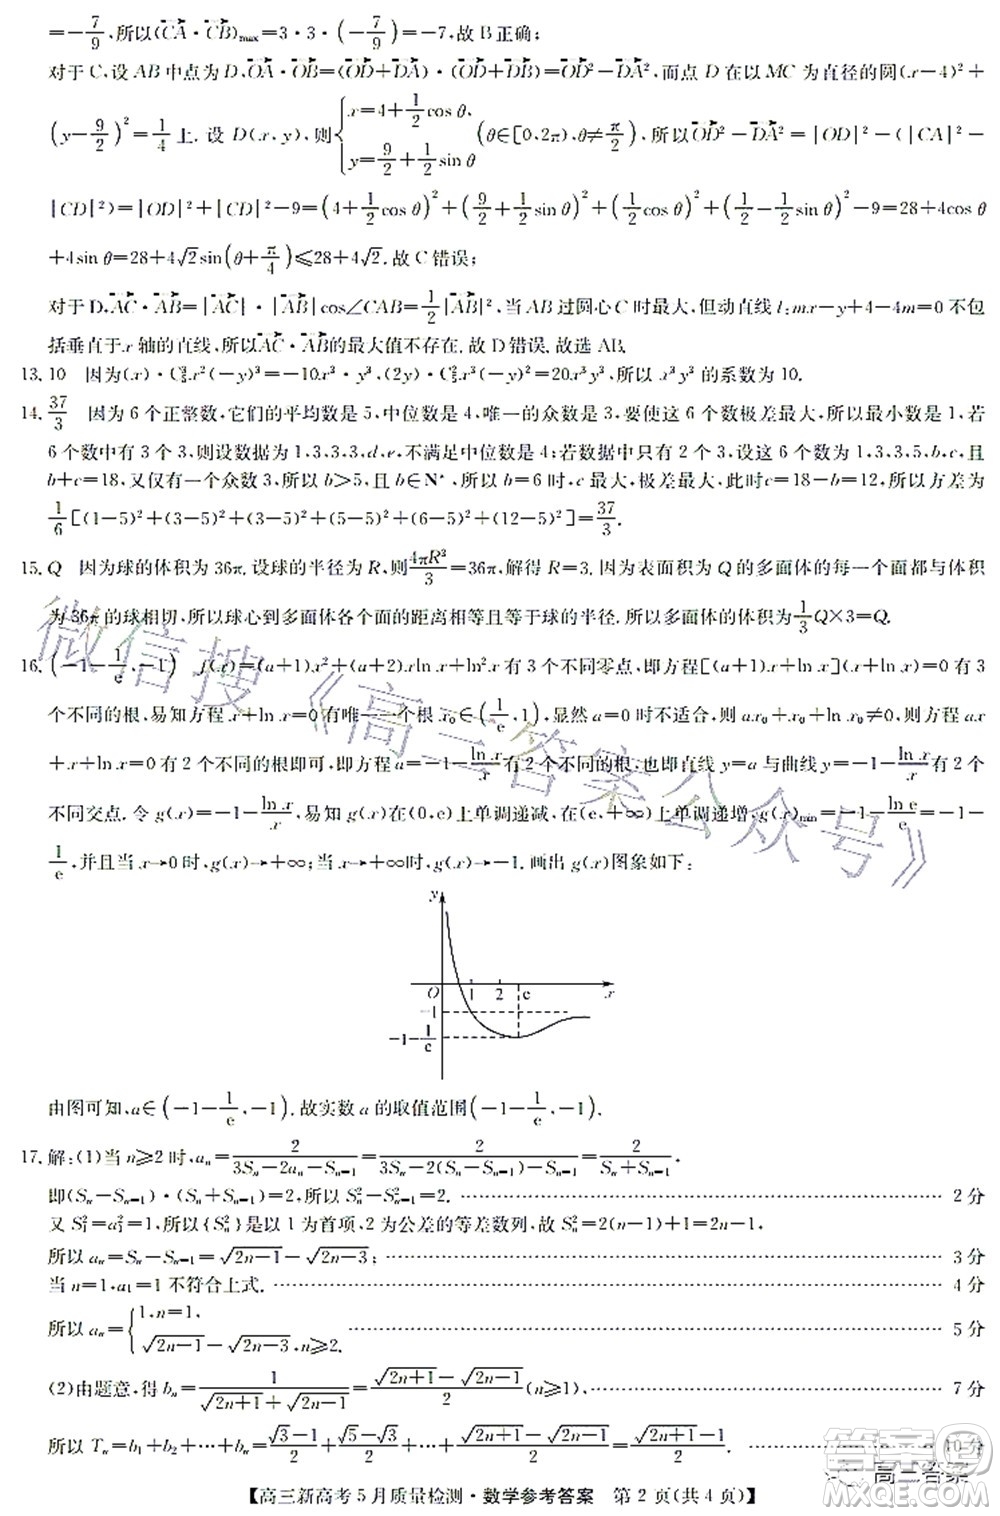 =-7/9,所以(CA·CB)max=3·3·(-7/9)=-7,故 B 正确;
对于 C,设 AB 中点为 D,OA·OB=(OD+DA)·(OD+DB)=OD²-DA²,而点 D 在以 MC 为直径的圆(x-4)²+
(y-9/2)²=1/4上. 设 D(x,y),则{x=4+1/2cos θ, y=9/2+1/2sin θ (θ∈[0,2π),θ≠π/2),所以OD²-DA²=|OD|²-(|CA|²-
|CD|²)=|OD|²+|CD|²-9=(4+1/2cos θ)²+(9/2+1/2sin θ)²+(1/2cos θ)²+(1/2sin θ-1/2)²-9=28+4cos θ
+4sin θ=28+4√2sin(θ+π/4)≤28+4√2.故 C 错误;
对于 D,AC·AB=|AC|·|AB|cos∠CAB=1/2|AB|²,当 AB 过圆心 C 时最大,但动直线 l:mx-y+4-4m=0 不包
括垂直于 x 轴的直线,所以AC·AB的最大值不存在.故 D 错误.故选 AB.
13. 10 因为(x)·C₅³x²(-y)³=-10x³y³,(2y)·C₅²x³(-y)²=20x³y³,所以 x³y³ 的系数为 10.
14. 37/3 因为 6 个正整数,它们的平均数是 5,中位数是 4,唯一的众数是 3,要使这 6 个数极差最大,所以最小数是 1,若
6 个数中有 3 个 3,则设数据为 1,3,3,3,d,e,不满足中位数是 4;若数据中只有 2 个 3,设这六个数是 1,3,3,5,b,c,且
b+c=18,又仅有一个众数 3,所以 b>5,且 b∈N*,所以 b=6 时,c 最大,极差最大,此时c=18-b=12,所以方差为
1/6[(1-5)²+(3-5)²+(3-5)²+(5-5)²+(6-5)²+(12-5)²]=37/3.
15. Q 因为球的体积为 36π.设球的半径为 R,则4πR³/3=36π,解得 R=3.因为表面积为 Q 的多面体的每一个面都与体积
为 36π 的球相切,所以球心到多面体各个面的距离相等且等于球的半径.所以多面体的体积为1/3Q×3=Q.
16. (-1-1/e,-1) f(x)=(a+1)x²+(a+2)xln x+ln²x 有 3 个不同零点,即方程[(a+1)x+ln x](x+ln x)=0 有 3
个不同的根,易知方程 x+ln x=0 有唯一一个根 x₀∈(1/e,1),显然 a=0 时不适合,则 ax₀+x₀+ln x₀≠0,故方程 ax
+x+ln x=0 有 2 个不同的根即方程 a=-1-ln x/x有 2 个不同的根,即直线 y=a 与曲线 y=-1-ln x/x有 2 个
不同交点.令 g(x)=-1-ln x/x,易知 g(x)在(0,e)上单调递减,在(e,+∞)上单调递增,g(x)min=-1-ln e/e=-1-
1/e,并且当 x→0 时,g(x)→+∞;当 x→+∞时,g(x)→-1.画出 g(x)图象如下:
y
O 1 2 e x
-1
-1-1/e
由图可知,a∈(-1-1/e,-1).故实数 a 的取值范围(-1-1/e,-1).
17. 解:(1)当 n≥2 时,aₙ=2/(3Sₙ-2aₙ-Sₙ₋₁)=2/(3Sₙ-2(Sₙ-Sₙ₋₁)-Sₙ₋₁)=2/(Sₙ+Sₙ₋₁).
即(Sₙ-Sₙ₋₁)·(Sₙ+Sₙ₋₁)=2,所以 Sₙ²-Sₙ₋₁²=2. …… 2 分
又 S₁²=a₁²=1,所以{Sₙ²}是以 1 为首项,2 为公差的等差数列,故 Sₙ²=2(n-1)+1=2n-1,
所以 aₙ=Sₙ-Sₙ₋₁=√(2n-1)-√(2n-3); …… 3 分
当 n=1,a₁=1 不符合上式. …… 4 分
所以 aₙ={1,n=1, √(2n-1)-√(2n-3),n≥2. …… 5 分
(2)由题意,得 bₙ=1/(√(2n+1)+√(2n-1))=(√(2n+1)-√(2n-1))/2(n≥1), …… 7 分
所以 Tₙ=b₁+b₂+…+bₙ=(√3-1)/2+(√5-√3)/2+…+(√(2n+1)-√(2n-1))/2=(√(2n+1)-1)/2. …… 10 分
【高三新高考 5 月质量检测·数学参考答案 第 2 页(共 4 页)】
微信搜《高三答案公众号》
高三答案